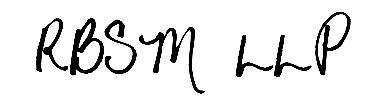 RBSM LLP